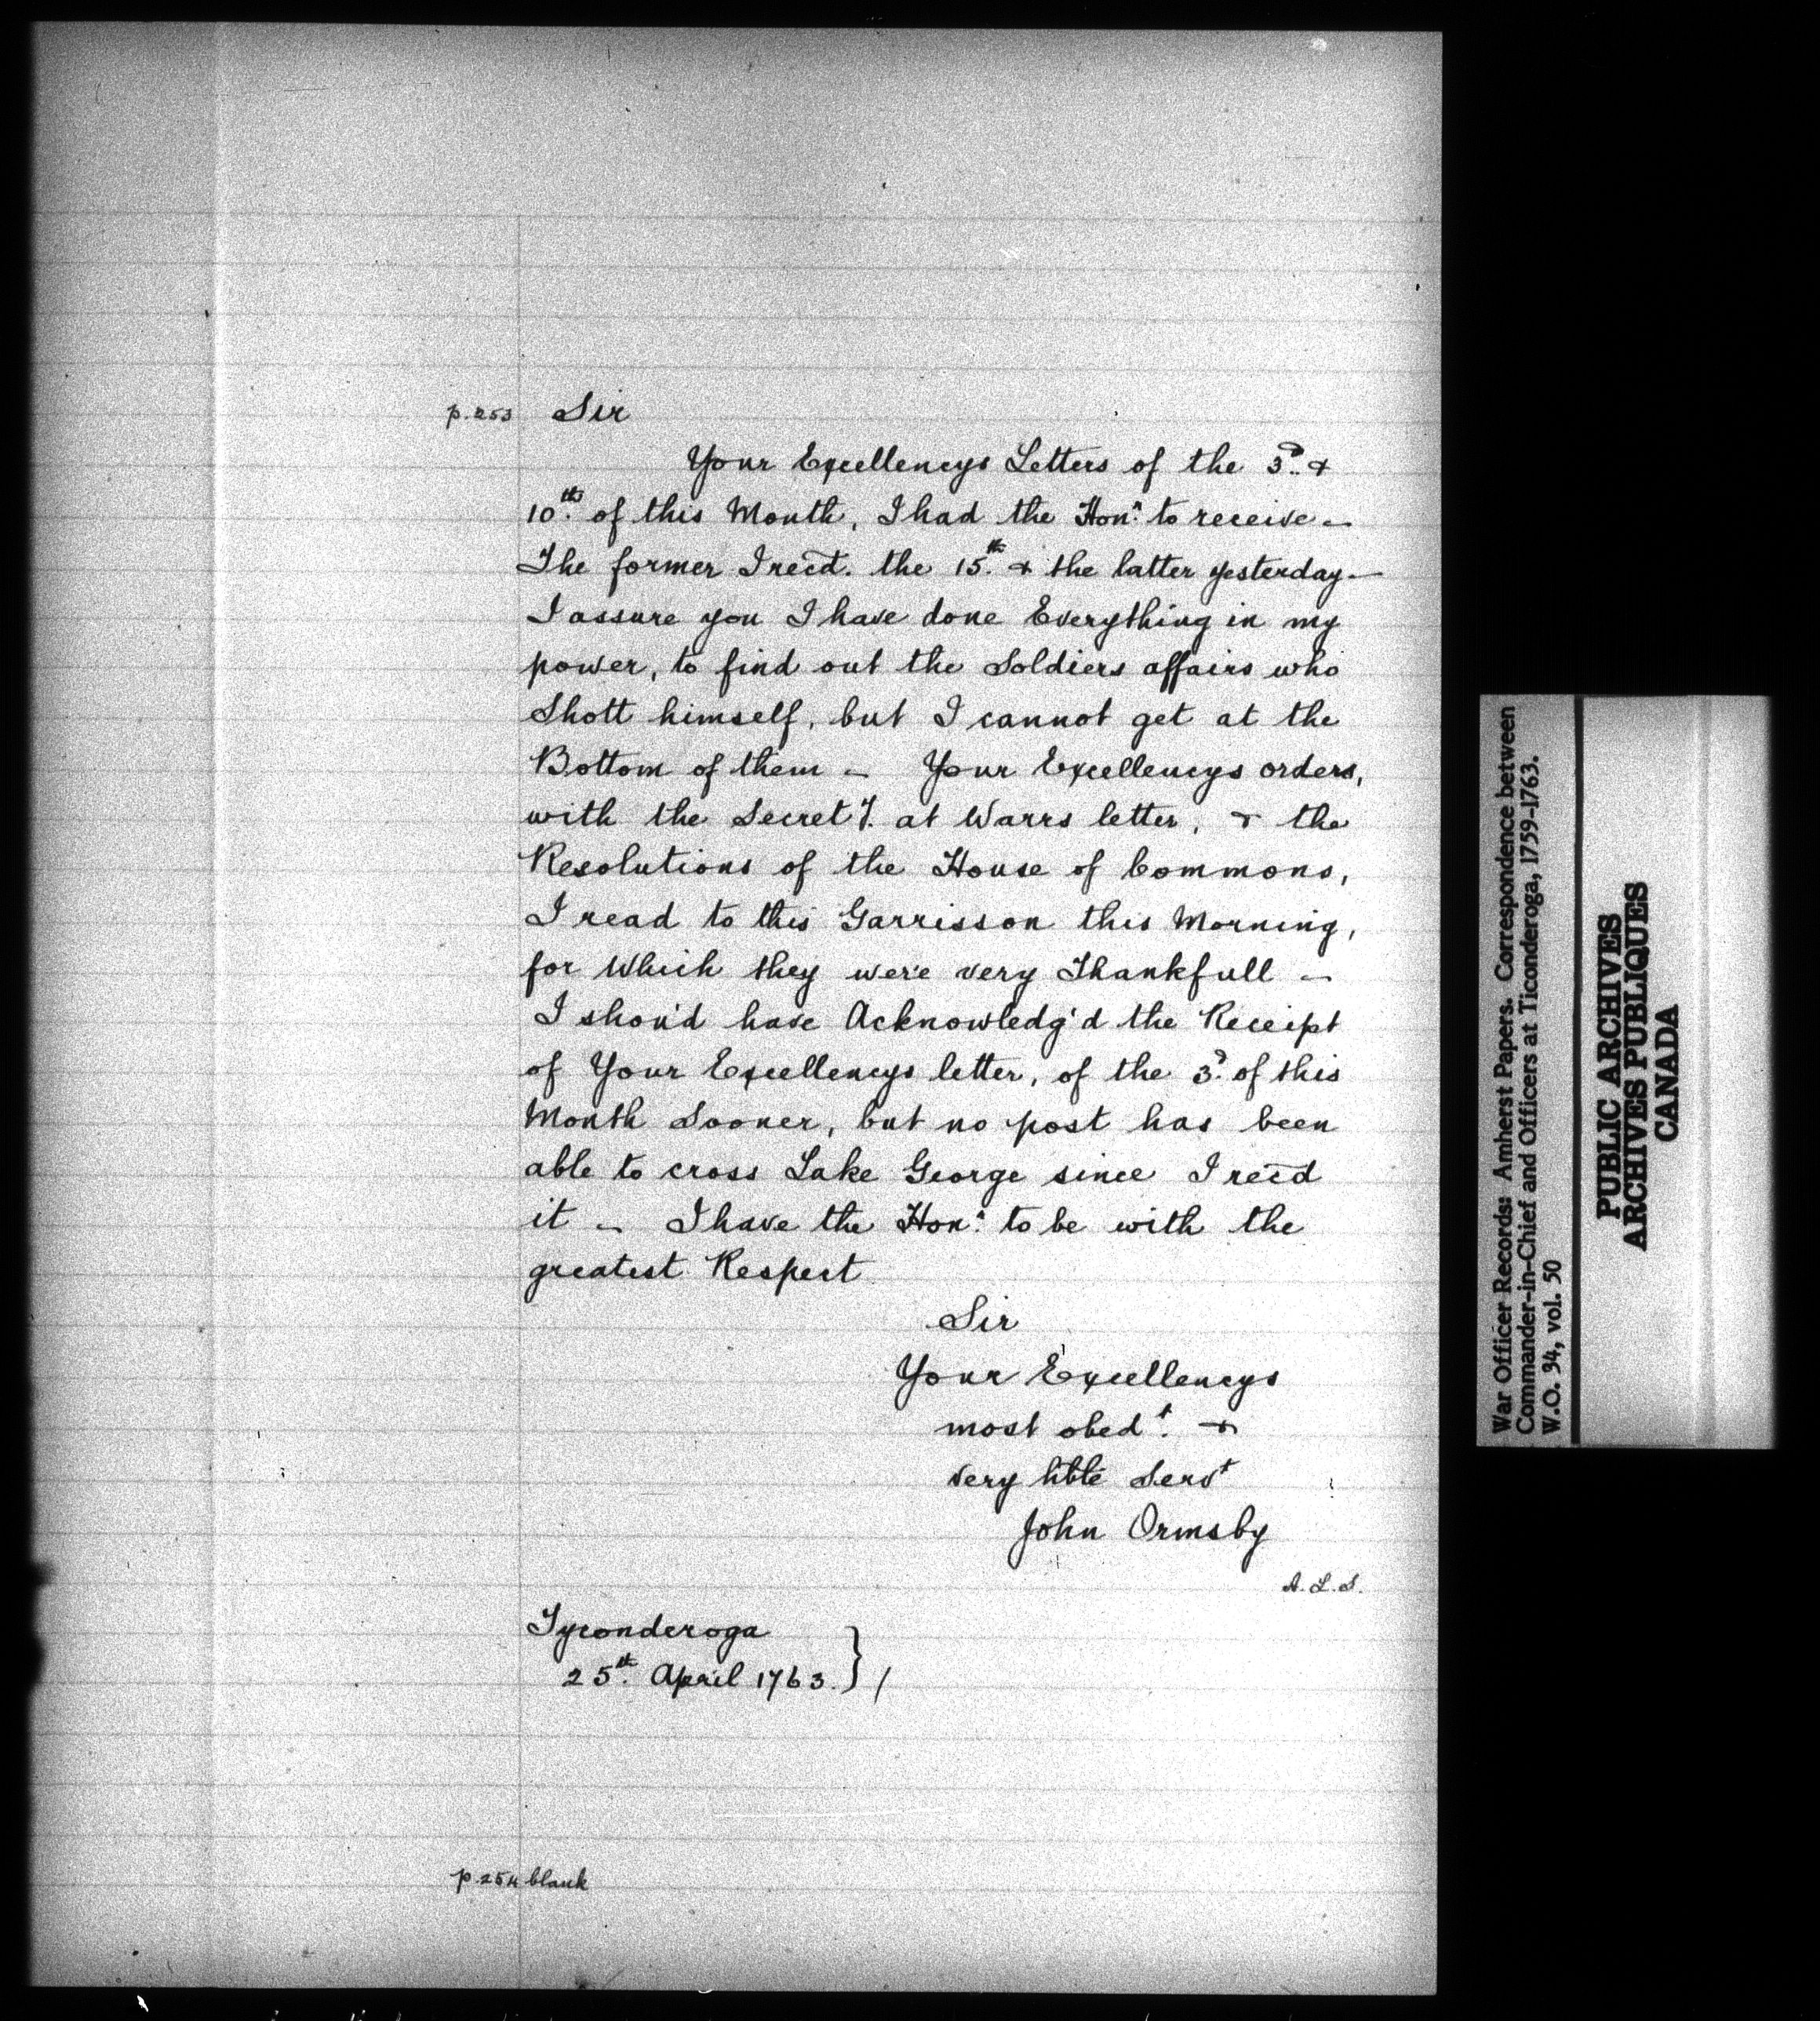 p. 253 Sir
Your Excellencys Letters of the 3.ᵈ &
10.ᵗʰ of this Month, I had the Hon.ʳ to receive –
The former I recd. the 15.ᵗʰ & the latter yesterday –
I assure you I have done Everything in my
power, to find out the Soldiers affairs who
Shott himself, but I cannot get at the
Bottom of them – Your Excellencys orders,
with the Secret.ʸ at Warrs letter, & the
Resolutions of the House of Commons,
I read to this Garrisson this Morning,
for Which they were very Thankfull –
I shou'd have Acknowledg'd the Receipt
of Your Excellencys letter, of the 3.ᵈ of this
Month Sooner, but no post has been
able to cross Lake George since I recd
it – I have the Hon.ʳ to be with the
greatest Respect
Sir
Your Excellencys
most obed.ᵗ &
very hble Servᵗ
John Ormsby
A. L. S.
Tyconderoga
25.ᵗʰ April 1763. } /
p. 254 blank
War Officer Records: Amherst Papers. Correspondence between
Commander-in-Chief and Officers at Ticonderoga, 1759-1763.
W.O. 34, vol. 50
PUBLIC ARCHIVES
ARCHIVES PUBLIQUES
CANADA